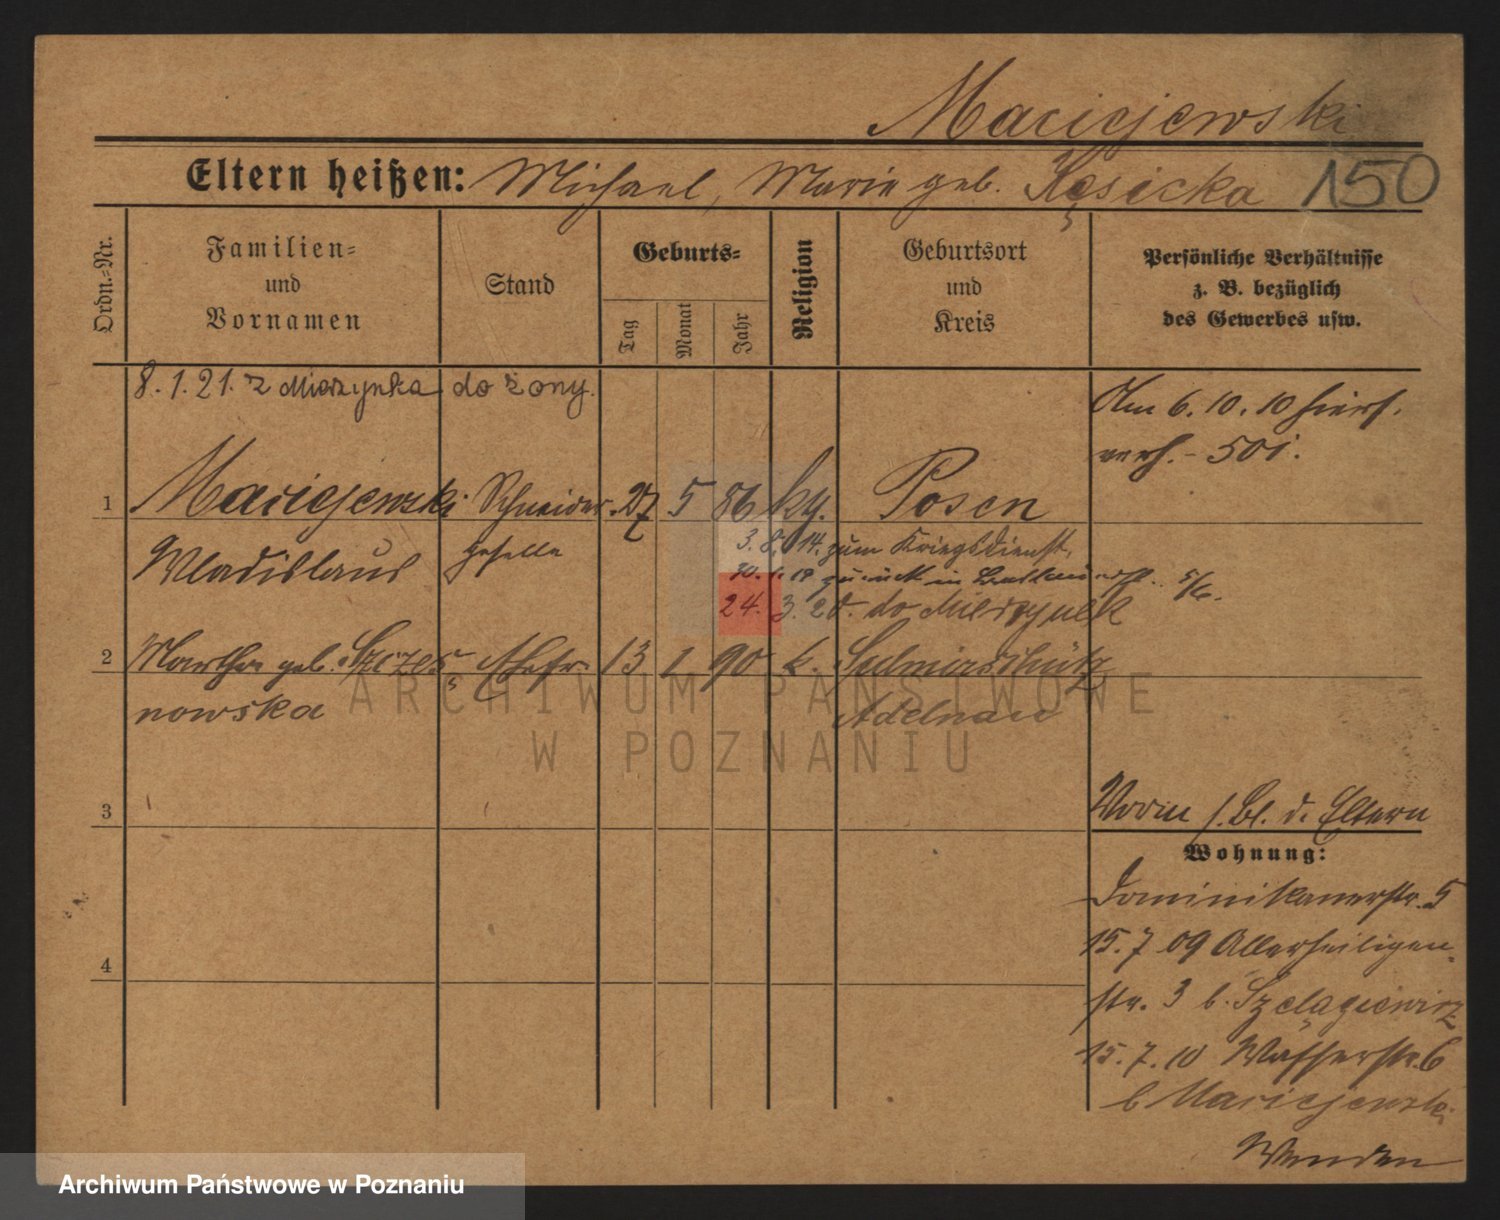 Maciejewski
Eltern heißen: Michael, Marie geb. Kęsicka 150
Ordn.=Nr.
Familien=
und
Vornamen
Stand
Geburts=
Tag
Monat
Jahr
Religion
Geburtsort
und
Kreis
Persönliche Verhältnisse
z. B. bezüglich
des Gewerbes usw.
8.1.21. z Mierzynka do żony.
Am 6.10.10 hiers.
verh. - 501.
1 Maciejewski Schneider 27 5 86 ky. Posen
Wladislaus geselle
3.8.14. zum Kriegsdienst,
zurück in
24.3.20. do
2 Martha geb. Szczes Ehefr. 13 1 90 k. Sulmirschütz
nowska Adelnau
ARCHIWUM PAŃSTWOWE
W POZNANIU
3
Vorm s. Bl. d. Eltern
Wohnung:
Dominikanerstr. 5
15.7.09 Allerheiligen-
4
str. 3 b. Szelagiewicz
15.7.10 Wasserstr. 6
b Maciejewski
Wenden
Archiwum Państwowe w Poznaniu